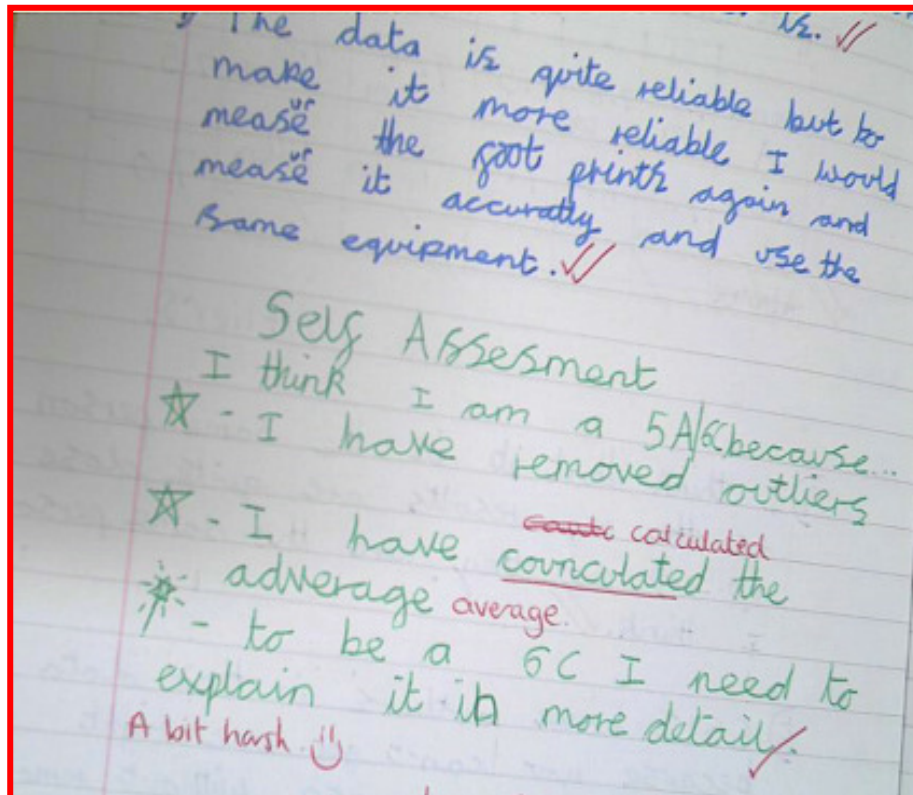 is. ✓✓
The data is quite reliable but to
make it more reliable I would
measure the foot prints again and
measure it accuratly and use the
same equipment. ✓✓
Self Assesment
I think I am a 5A/6C because...
☆ - I have removed outliers
calculated
☆ - I have counculated the
adverage average.
- to be a 6C I need to
explain it in more detail. ✓
A bit harsh